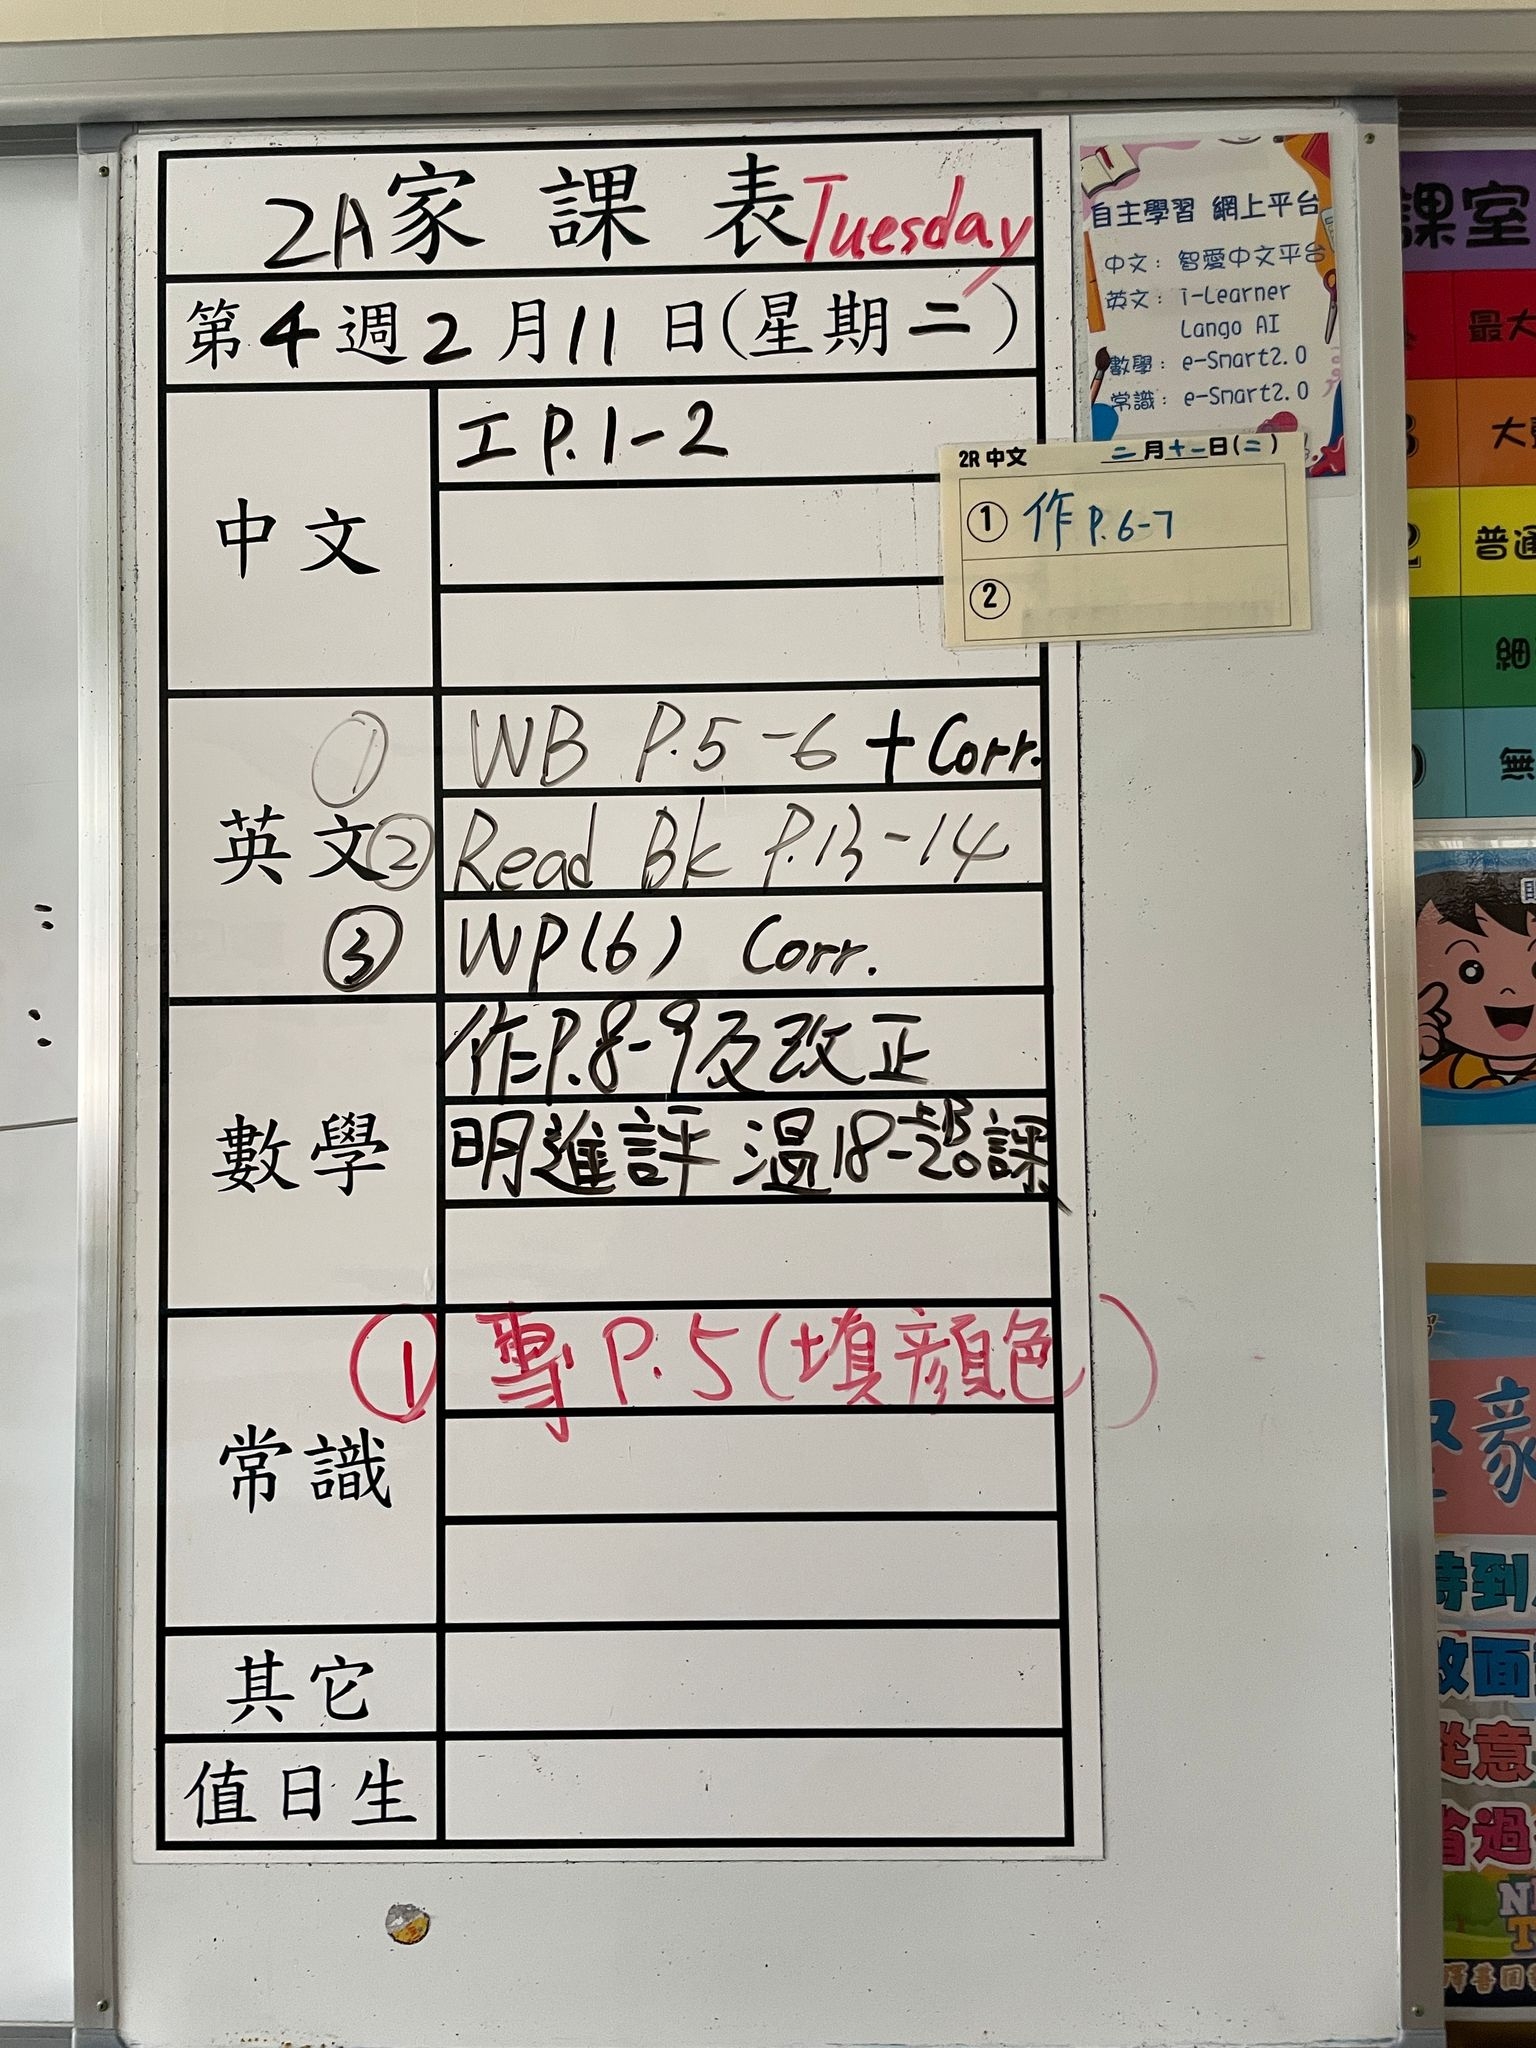 2A家課表 Tuesday
第4週2月11日(星期二)
中文
工P.1-2
英文
① WB P.5-6 + Corr.
② Read Bk P.13-14
③ WP(6) Corr.
數學
作P.8-9及改正
明進評 温18-20課
常識
① 專P.5(填顏色)
其它
值日生
自主學習 網上平台
中文: 智愛中文平台
英文: i-Learner
Lango AI
數學: e-Smart2.0
常識: e-Smart2.0
2R 中文 二月十一日(二)
① 作 P.6-7
②
課室
最大
普通
細
無